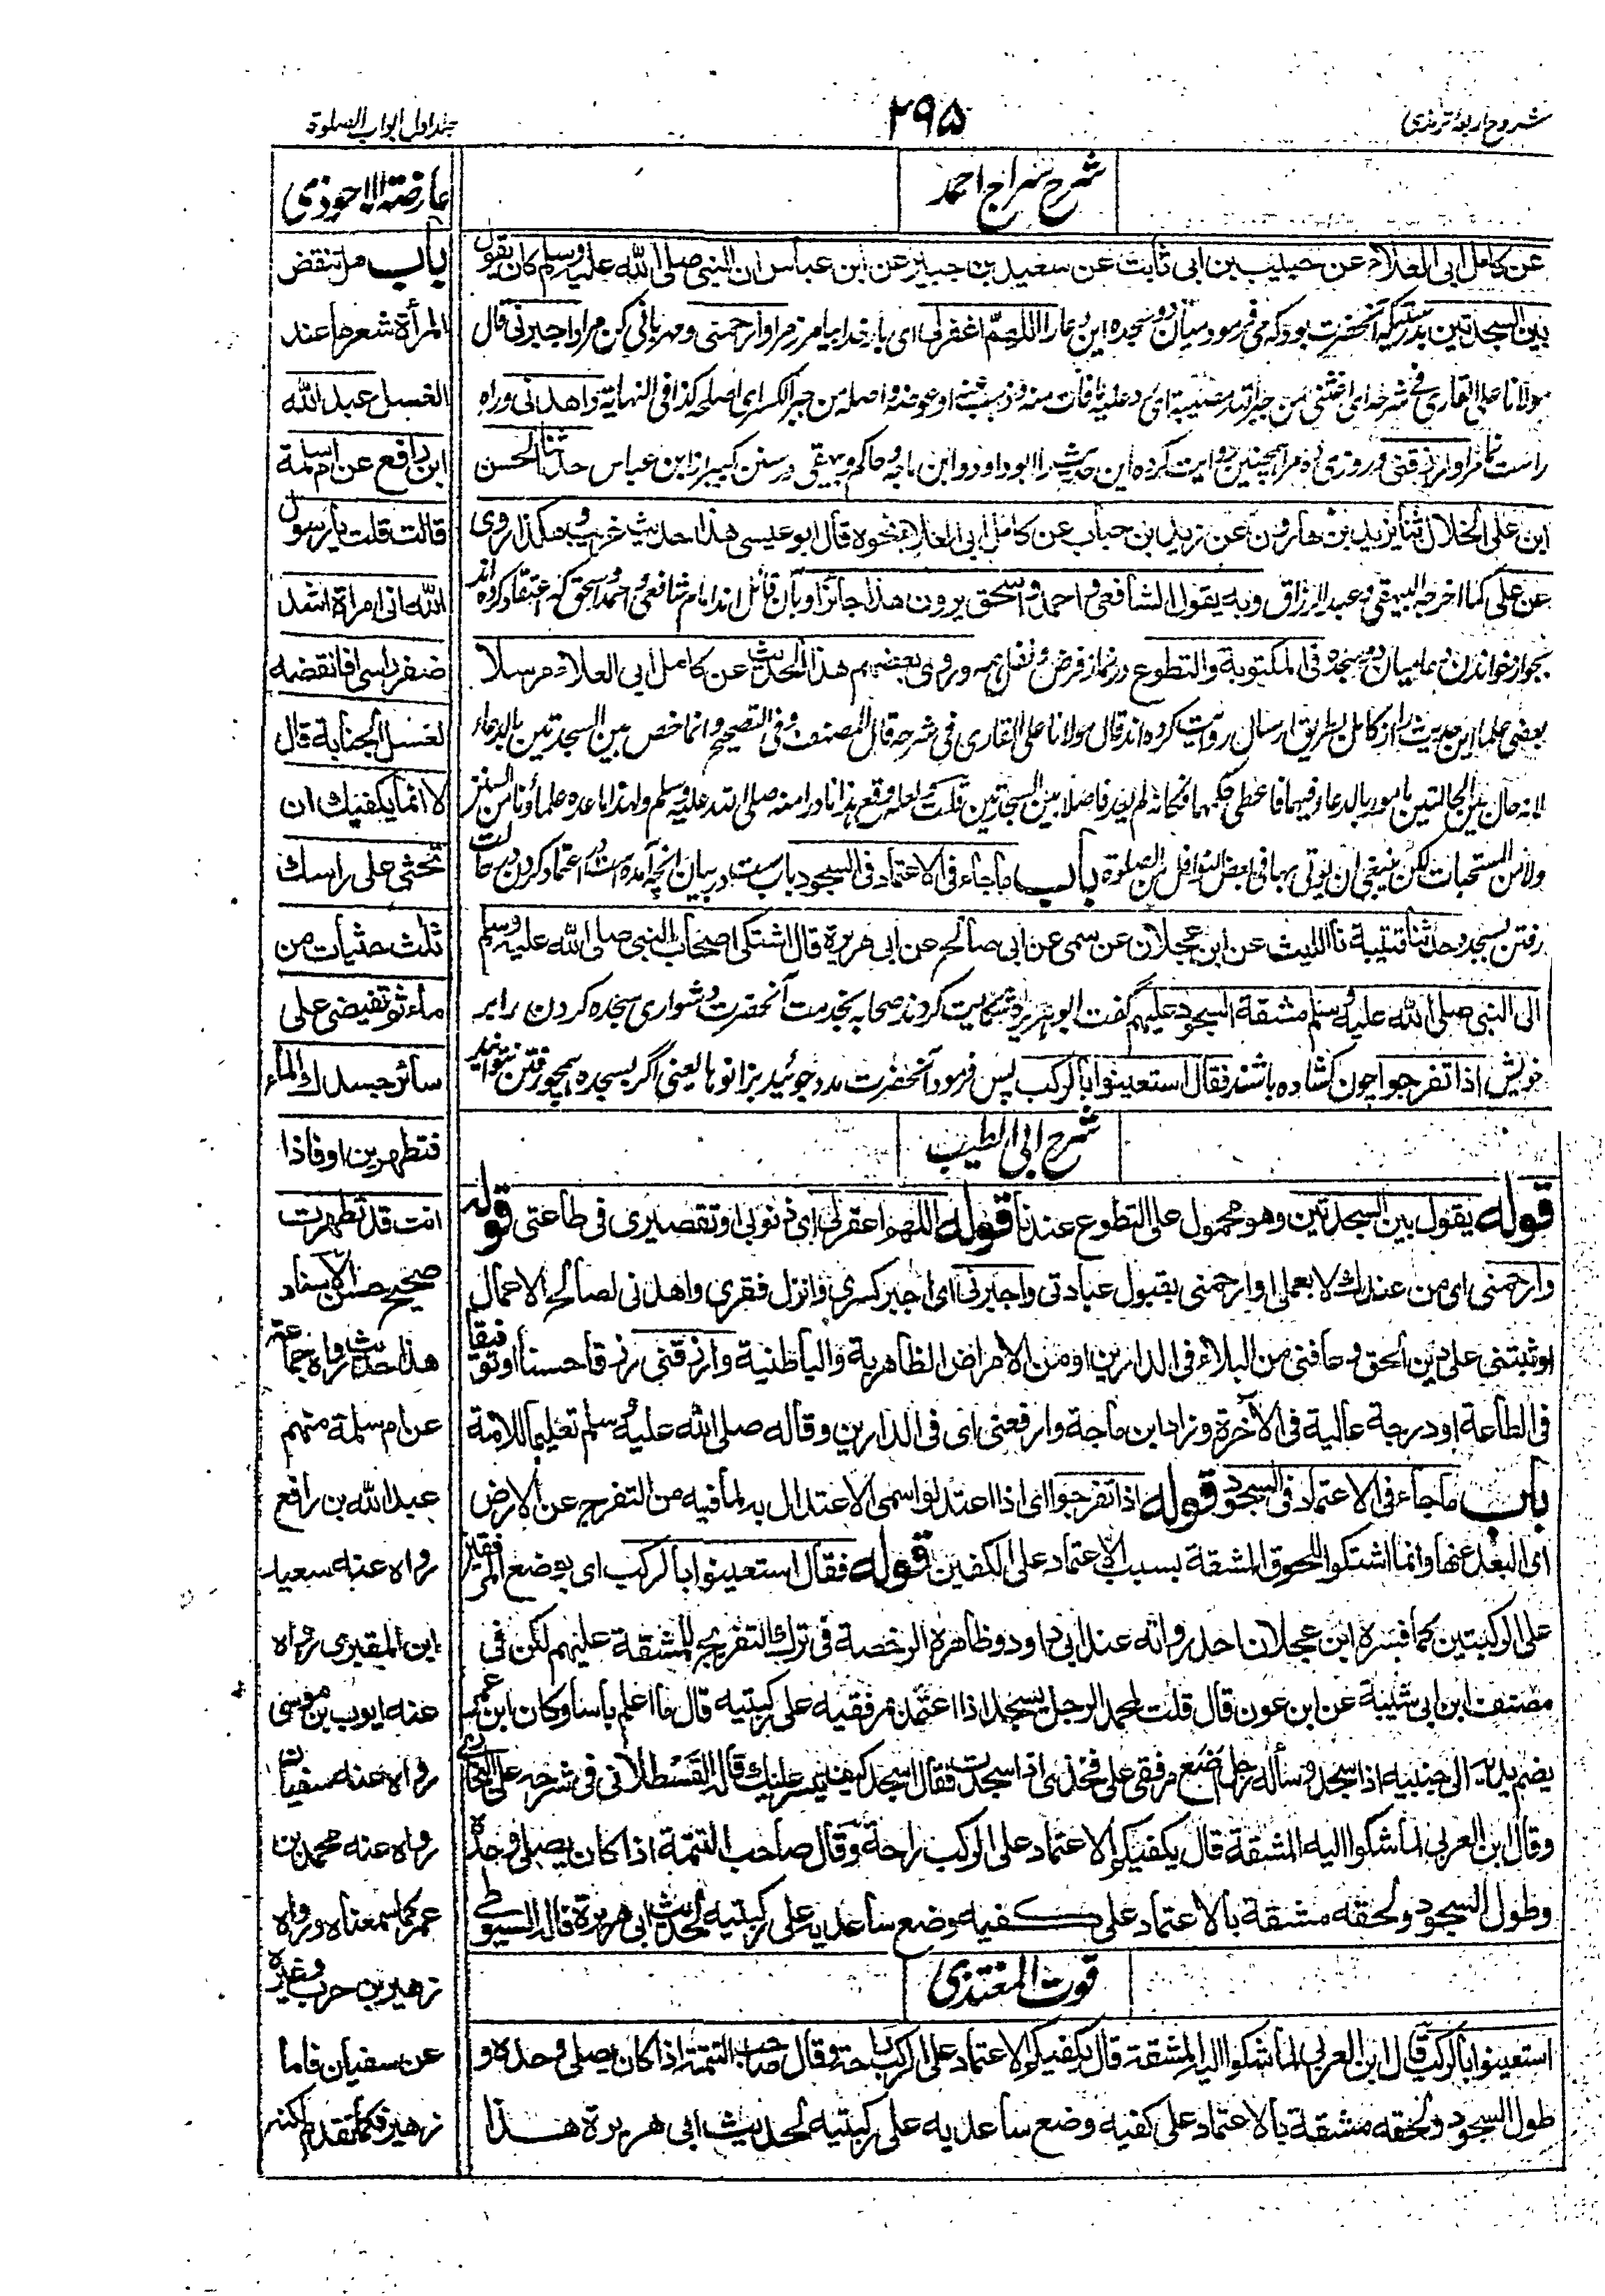 شروح اربعۂ ترمذی
۲۹۵
جلد اول ابواب الصلوة
شرح سراج احمد
عن كامل ابی العلاء عن حبیب بن ابی ثابت عن سعید بن جبیر عن ابن عباس ان النبی صلی الله علیه وسلم كان یقول
بین السجدتین بدرستیکه آنحضرت بود که می فرمود میان دو سجده این دعا را اللهم اغفرلی ای بار خدا بیامرز مرا وارحمنی ومهربانی کن مرا واجبرنی قال
مولانا علی القاری فی شرحه ای اغننی من جبر الله مصیبته ای رد علیه ما فات منه وذهب عنه او عوضه واصله من جبر الکسر ای اصلحه کذا فی النهایة واهدنی وراه
راست نما مرا وارزقنی وروزی ده مرا همچنین روایت کرده این حدیث را ابوداود وابن ماجه وحاکم وبیهقی در سنن کبیر از ابن عباس حدثنا الحسن
ابن علی الخلال ثنا یزید بن هارون عن زید بن حباب عن كامل ابی العلاء نحوه قال ابو عیسی هذا حدیث غریب وهكذا روی
عن علی كما اخرجه البیهقی وعبد الرزاق وبه یقول الشافعی واحمد واسحق یرون هذا جائزا وبآن قائل اند امام شافعی واحمد واسحق که اعتقاد کرده اند
بجواز خواندن دعا میان دو سجده فی المكتوبة والتطوع در نماز فرض ونفل همه وروی بعضهم هذا الحدیث عن كامل ابی العلاء مرسلا
بعضی علما این حدیث را از کامل بطریق ارسال روایت کرده اند قال مولانا علی القاری فی شرحه قال المصنف وفی التصحیح وانما خص بین السجدتین بالدعاء
لانه حال بین الحالتین مامور بالدعاء فیهما فاعطی حکمهما فکانه لم یعد فاصلا بین السجدتین قلت لعله وقع هذا نادرا منه صلی الله علیه وسلم ولهذا ما عده علماؤنا من السنن
ولا من المستحبات لکن ینبغی ان یوتی بها فی بعض النوافل من الصلوة باب ما جاء فی الاعتماد فی السجود باب ست در بیان آنچه آمده است در اعتماد کردن در حالت
رفتن بسجده حدثنا قتیبة نا اللیث عن ابن عجلان عن سمی عن ابی صالح عن ابی هریرة قال اشتكی اصحاب النبی صلی الله علیه وسلم
الی النبی صلی الله علیه وسلم مشقة السجود علیهم گفت ابو هریرة شکایت کردند صحابه بخدمت آنحضرت دشواری سجده کردن را بر
خویش اذا تفرجوا چون کشاده باشند فقال استعینوا بالركب پس فرمود آنحضرت مدد جوئید بزانوها یعنی اگر بسجده همچو رفتن نتوانید
شرح ابی الطیب
قوله یقول بین السجدتین وهو محمول علی التطوع عندنا قوله اللهم اغفرلی ای ذنوبی او تقصیری فی طاعتی قوله
وارحمنی ای من عندك لا بعملی او ارحمنی بقبول عبادتی واجبرنی ای اجبر كسری وانزل فقری واهدنی لصالح الاعمال
او ثبتنی علی دین الحق وعافنی من البلاء فی الدارین او من الامراض الظاهریة والباطنیة وارزقنی رزقا حسنا او توفیقا
فی الطاعة او درجة عالیة فی الآخرة وزاد ابن ماجة وارفعنی ای فی الدارین وقاله صلی الله علیه وسلم تعلیما للامة
باب ما جاء فی الاعتماد فی السجود قوله اذا تفرجوا ای اذا اعتدلوا سمی الاعتدال به لما فیه من التفرج عن الارض
ای البعد عنها وانما اشتكوا للحوق المشقة بسبب الاعتماد علی الكفین قوله فقال استعینوا بالركب ای بوضع المرفقین
علی الركبتین كما فسره ابن عجلان احد رواته عند ابی داود وظاهره الرخصة فی ترك التفریج للمشقة علیهم لكن فی
مصنف ابن ابی شیبة عن ابن عون قال قلت لمحمد الرجل یسجد اذا اعتمد مرفقیه علی ركبتیه قال ما اعلم باسا وكان ابن عمر
یضم یدیه الی جنبیه اذا سجد وسأله رجل اضع مرفقی علی فخذی اذا سجدت فقال اسجد كیف تیسر علیك قاله القسطلانی فی شرحه علی البخاری
وقال ابن العربی لما شكوا الیه المشقة قال یكفیكم الاعتماد علی الركب راحة وقال صاحب التتمة اذا كان یصلی وحده
وطول السجود ولحقه مشقة بالاعتماد علی كفیه وضع ساعدیه علی ركبتیه لحدیث ابی هریرة قاله السیوطی
قوت المغتذی
استعینوا بالركب قال ابن العربی لما شكوا الیه المشقة قال یكفیكم الاعتماد علی الركب راحة وقال صاحب التتمة اذا كان یصلی وحده و
طول السجود ولحقه مشقة بالاعتماد علی كفیه وضع ساعدیه علی ركبتیه لحدیث ابی هریرة هذا
عارضة الاحوذی
باب هل تنقض
المرأة شعرها عند
الغسل عبد الله
ابن رافع عن ام سلمة
قالت قلت یا رسول
الله انی امرأة اشد
ضفر راسی افانقضه
لغسل الجنابة قال
لا انما یكفیك ان
تحثی علی راسك
ثلث حثیات من
ماء ثم تفیضی علی
سائر جسدك الماء
فتطهرین او فاذا
انت قد تطهرت
صحیح حسن الاسناد
هذا حدیث رواه جماعة
عن ام سلمة منهم
عبد الله بن رافع
رواه عنه سعید
ابن المقبری رواه
عنه ایوب بن موسی
رواه عنه سفیان
رواه عنه محمد بن
عمر كما سمعناه ورواه
زهیر بن حرب وغیره
عن سفیان فاما
زهیر فكما تقدم لكنه